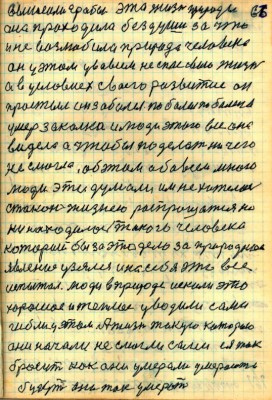 эта жизнь природы
она проходила без души за что
и не возлюбила природа человека
он у этом увяли не спас свою жизнь
а в условиях своего развития он
простыл он заболел поболел поболел и
умер закопали люди этого все она
видела а чтобы поделать ничего
не смогла, об этом обо всем много
люди эти думали, им не хотелося
с такою жизнею распрощатся но
не находилось такого человека
который бы за это дело за природное
явление узялся и на себя это все
испытал. люди в природе искали это
хорошее и теплое уводили сами
гибли у этом. А жизнь такую которою
они начали не смогли сами ее так
бросить как они умерали умерають
будут они так умерать